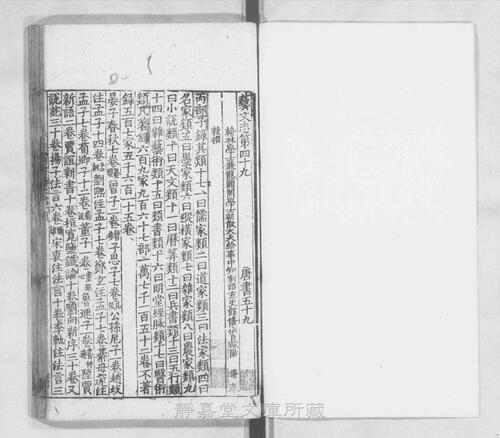 藝文志第四十九
唐書五十九
翰林學士兼龍圖閣學士朝散大夫給事中知制誥充史館脩撰臣歐陽脩奉
敕撰
丙部子録其類十七一曰儒家類二曰道家類三曰法家類四曰
名家類五曰墨家類六曰縱橫家類七曰雜家類八曰農家類九
曰小說類十曰天文類十一曰曆筭類十二曰兵書類十三曰五行類
十四曰雜藝術類十五曰類書類十六曰明堂經脉類十七曰醫術
類凡著録六百九家九百六十七部一萬七千一百五十二卷不著
録五百七家五千六百一十五卷
晏子春秋七卷晏嬰曾子二卷曾參子思子七卷孔伋公孫尼子一卷趙岐
注孟子十四卷孟軻劉熙注孟子七卷鄭玄注孟子七卷綦毋邃注
孟子七卷荀卿子十二卷荀況董子一卷董無心魯連子一卷魯仲連陸賈
新語二卷賈誼新書十卷桓寬鹽鐵論十卷劉向新序三十卷又
說苑三十卷揚子法言六卷揚雄宋衷注法言十卷李軌注法言三
靜嘉堂文庫所藏